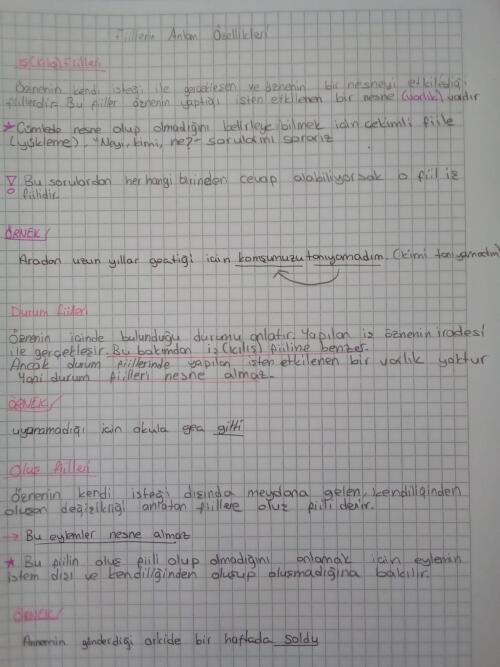 Fiillerin Anlam Özellikleri
İş(Kılış) fiilleri
Öznenin kendi isteği ile gerçekleşen ve öznenin bir nesneyi etkilediği
fiillerdir. Bu fiiller öznenin yaptığı işten etkilenen bir nesne (varlık) vardır
★ Cümlede nesne olup olmadığını belirleye bilmek için çekimli fiile
(yükleme), "Neyi, kimi, ne?- sorularını sorarız
! Bu sorulardan her hangi birinden cevap alabiliyorsak o fiil iş
fiilidir.
ÖRNEK/
Aradan uzun yıllar geçtiği için komşumuzu tanıyamadım. (kimi tanıyamadım)
Durum fiilleri
Öznenin içinde bulunduğu durumu anlatır. Yapılan iş öznenin iradesi
ile gerçekleşir. Bu bakımdan iş (kılış) fiiline benzer.
Ancak durum fiillerinde yapılan işten etkilenen bir varlık yoktur
Yani durum fiilleri nesne almaz.
ÖRNEK/
uyanamadığı için okula geç gitti
Oluş fiilleri
Öznenin kendi isteği dışında meydana gelen, kendiliğinden
oluşan değişikliği anlatan fiillere oluş fiili denir.
→ Bu eylemler nesne almaz
★ Bu fiilin oluş fiili olup olmadığını anlamak için eylemin
istem dışı ve kendiliğinden oluşup oluşmadığına bakılır.
ÖRNEK/
Annemin gönderdiği orkide bir haftada soldu